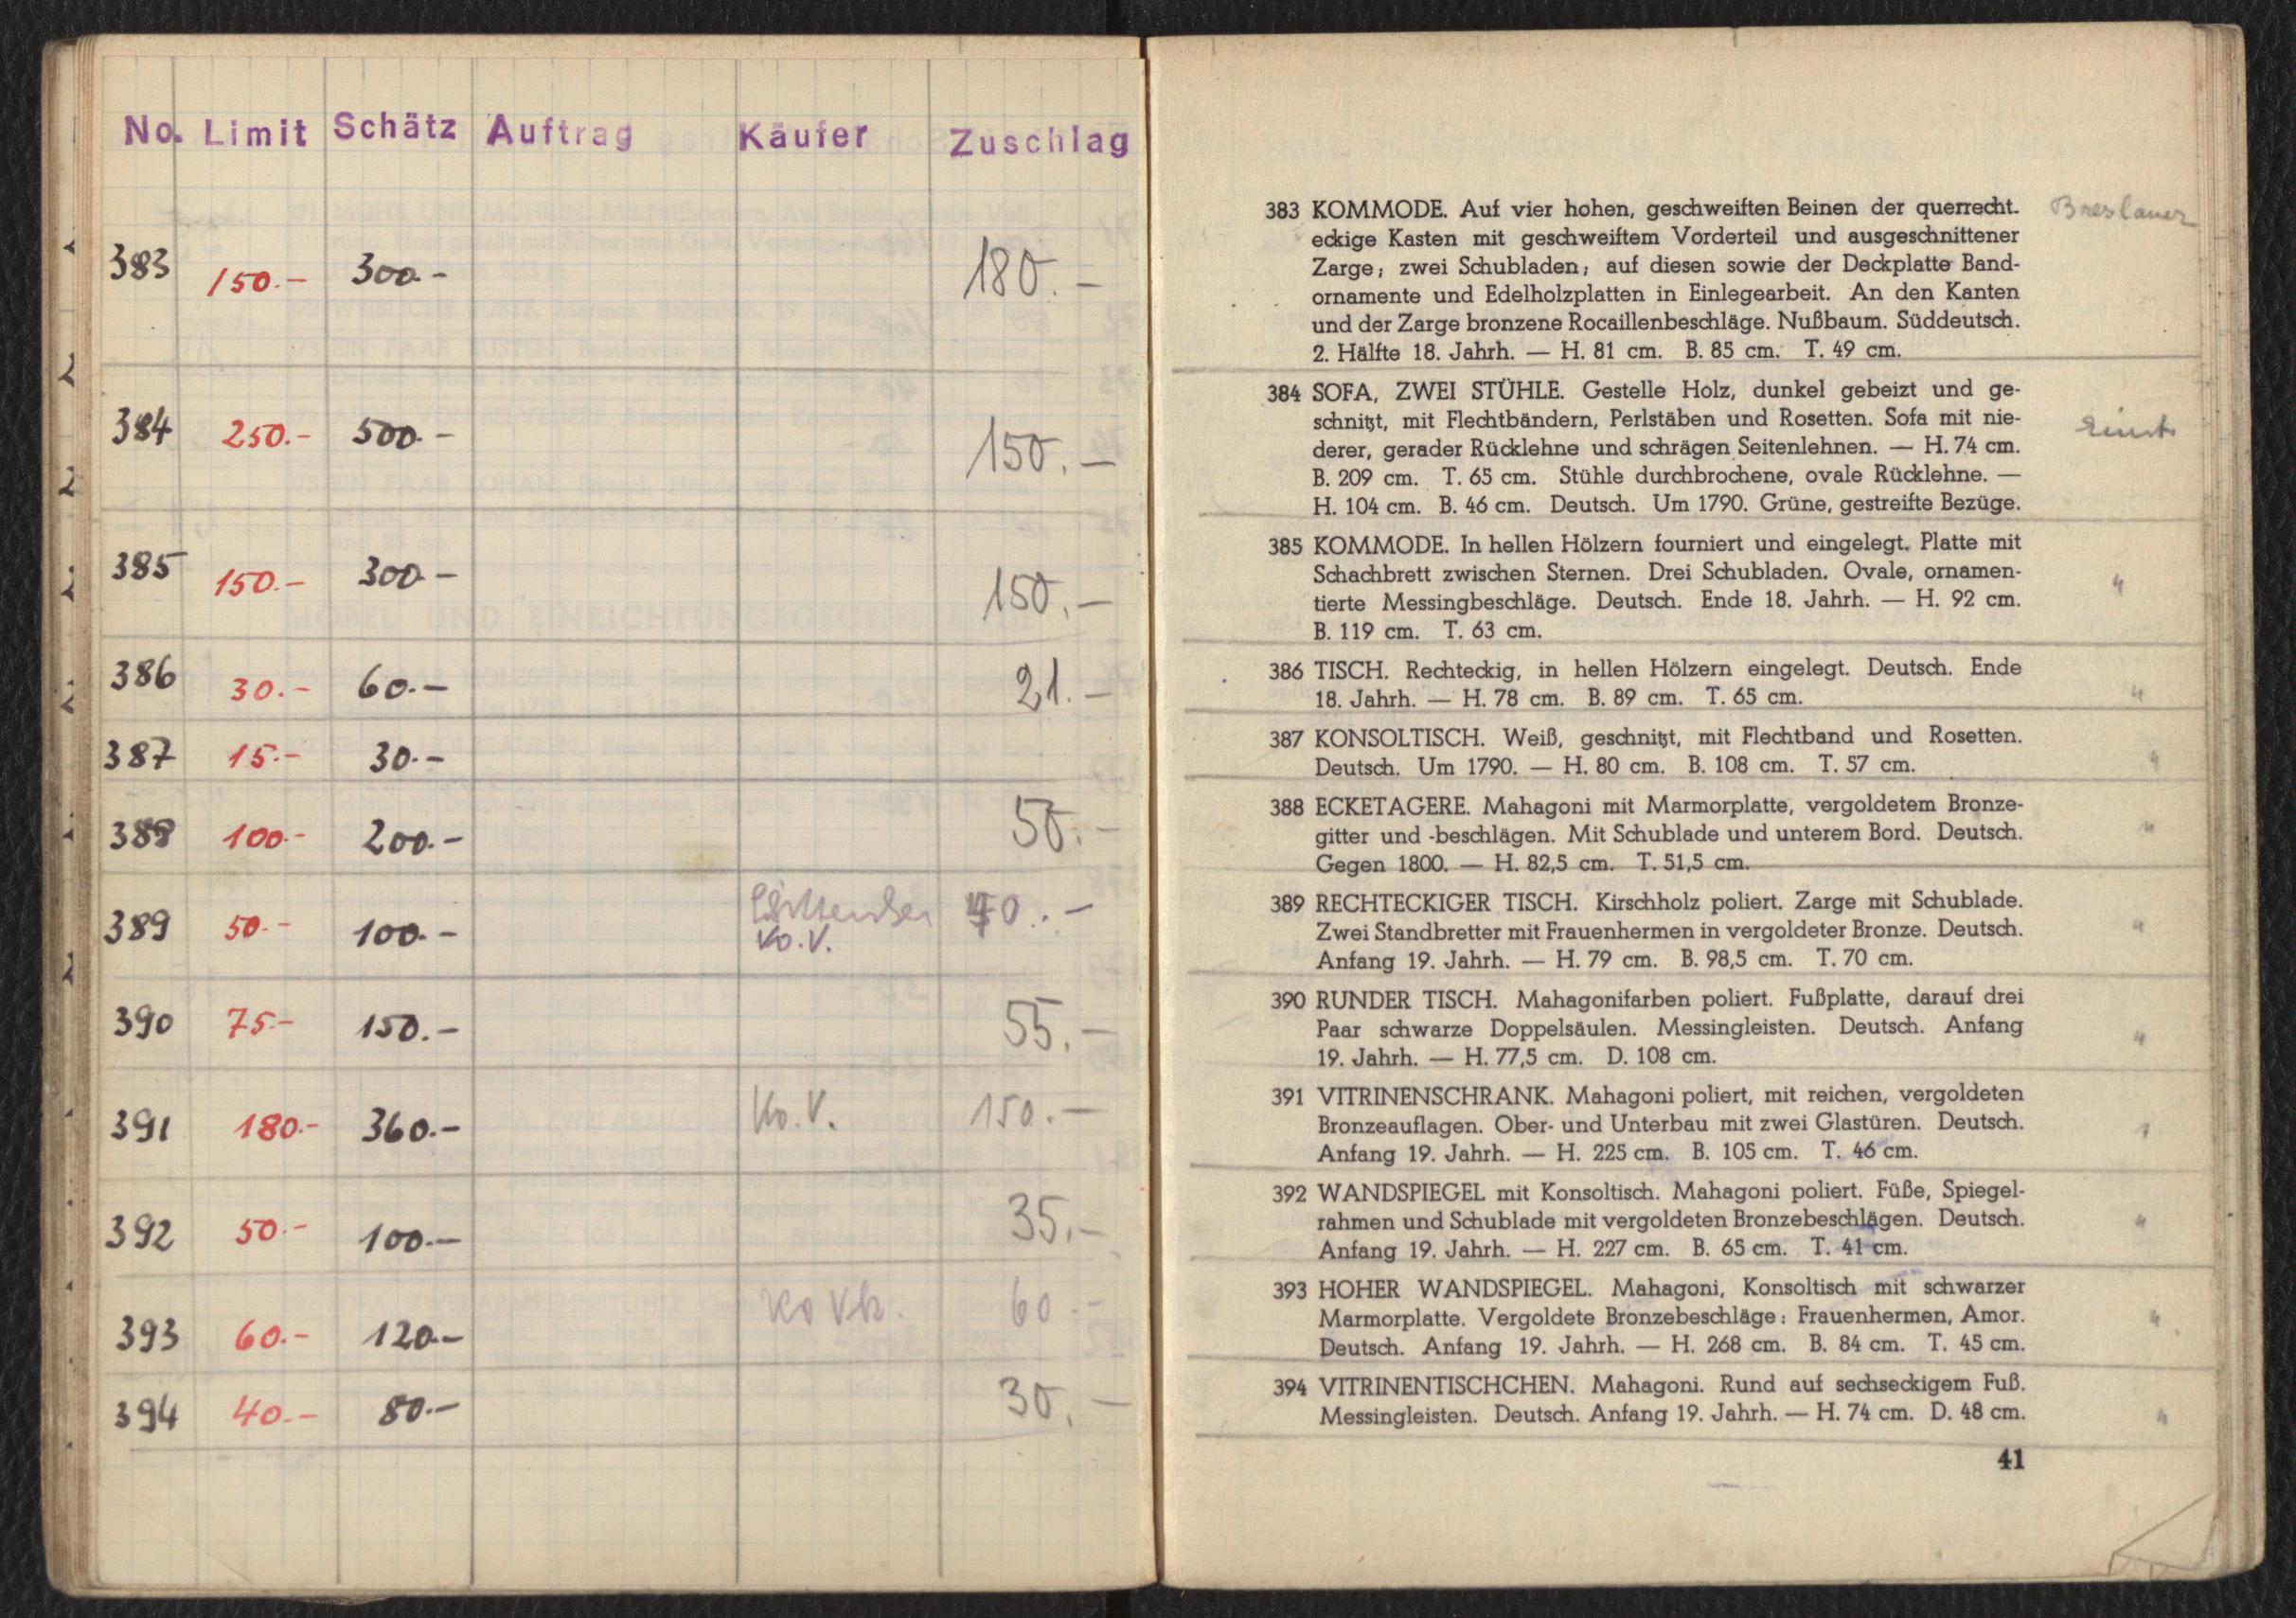 No. Limit Schätz Auftrag Käufer Zuschlag
383 150.- 300.- 180.-
384 250.- 500.- 150.-
385 150.- 300.- 150.-
386 30.- 60.- 21.-
387 15.- 30.-
388 100.- 200.- 50.-
389 50.- 100.- 40.-
Ko.V.
390 75.- 150.- 55.-
391 180.- 360.- Ko.V. 150.-
392 50.- 100.- 35.-
393 60.- 120.- Ko Vk. 60.-
394 40.- 80.- 30.-
383 KOMMODE. Auf vier hohen, geschweiften Beinen der querrecht- Breslauer
eckige Kasten mit geschweiftem Vorderteil und ausgeschnittener
Zarge; zwei Schubladen; auf diesen sowie der Deckplatte Band-
ornamente und Edelholzplatten in Einlegearbeit. An den Kanten
und der Zarge bronzene Rocaillenbeschläge. Nußbaum. Süddeutsch.
2. Hälfte 18. Jahrh. — H. 81 cm. B. 85 cm. T. 49 cm.
384 SOFA, ZWEI STÜHLE. Gestelle Holz, dunkel gebeizt und ge-
schnitzt, mit Flechtbändern, Perlstäben und Rosetten. Sofa mit nie-
derer, gerader Rücklehne und schrägen Seitenlehnen. — H. 74 cm.
B. 209 cm. T. 65 cm. Stühle durchbrochene, ovale Rücklehne. —
H. 104 cm. B. 46 cm. Deutsch. Um 1790. Grüne, gestreifte Bezüge.
385 KOMMODE. In hellen Hölzern fourniert und eingelegt. Platte mit
Schachbrett zwischen Sternen. Drei Schubladen. Ovale, ornamen- "
tierte Messingbeschläge. Deutsch. Ende 18. Jahrh. — H. 92 cm.
B. 119 cm. T. 63 cm.
386 TISCH. Rechteckig, in hellen Hölzern eingelegt. Deutsch. Ende
18. Jahrh. — H. 78 cm. B. 89 cm. T. 65 cm. "
387 KONSOLTISCH. Weiß, geschnitzt, mit Flechtband und Rosetten.
Deutsch. Um 1790. — H. 80 cm. B. 108 cm. T. 57 cm. "
388 ECKETAGERE. Mahagoni mit Marmorplatte, vergoldetem Bronze-
gitter und -beschlägen. Mit Schublade und unterem Bord. Deutsch. "
Gegen 1800. — H. 82,5 cm. T. 51,5 cm.
389 RECHTECKIGER TISCH. Kirschholz poliert. Zarge mit Schublade.
Zwei Standbretter mit Frauenhermen in vergoldeter Bronze. Deutsch. "
Anfang 19. Jahrh. — H. 79 cm. B. 98,5 cm. T. 70 cm.
390 RUNDER TISCH. Mahagonifarben poliert. Fußplatte, darauf drei
Paar schwarze Doppelsäulen. Messingleisten. Deutsch. Anfang "
19. Jahrh. — H. 77,5 cm. D. 108 cm.
391 VITRINENSCHRANK. Mahagoni poliert, mit reichen, vergoldeten
Bronzeauflagen. Ober- und Unterbau mit zwei Glastüren. Deutsch. "
Anfang 19. Jahrh. — H. 225 cm. B. 105 cm. T. 46 cm.
392 WANDSPIEGEL mit Konsoltisch. Mahagoni poliert. Füße, Spiegel-
rahmen und Schublade mit vergoldeten Bronzebeschlägen. Deutsch. "
Anfang 19. Jahrh. — H. 227 cm. B. 65 cm. T. 41 cm.
393 HOHER WANDSPIEGEL. Mahagoni, Konsoltisch mit schwarzer
Marmorplatte. Vergoldete Bronzebeschläge: Frauenhermen, Amor. "
Deutsch. Anfang 19. Jahrh. — H. 268 cm. B. 84 cm. T. 45 cm.
394 VITRINENTISCHCHEN. Mahagoni. Rund auf sechseckigem Fuß.
Messingleisten. Deutsch. Anfang 19. Jahrh. — H. 74 cm. D. 48 cm. "
41